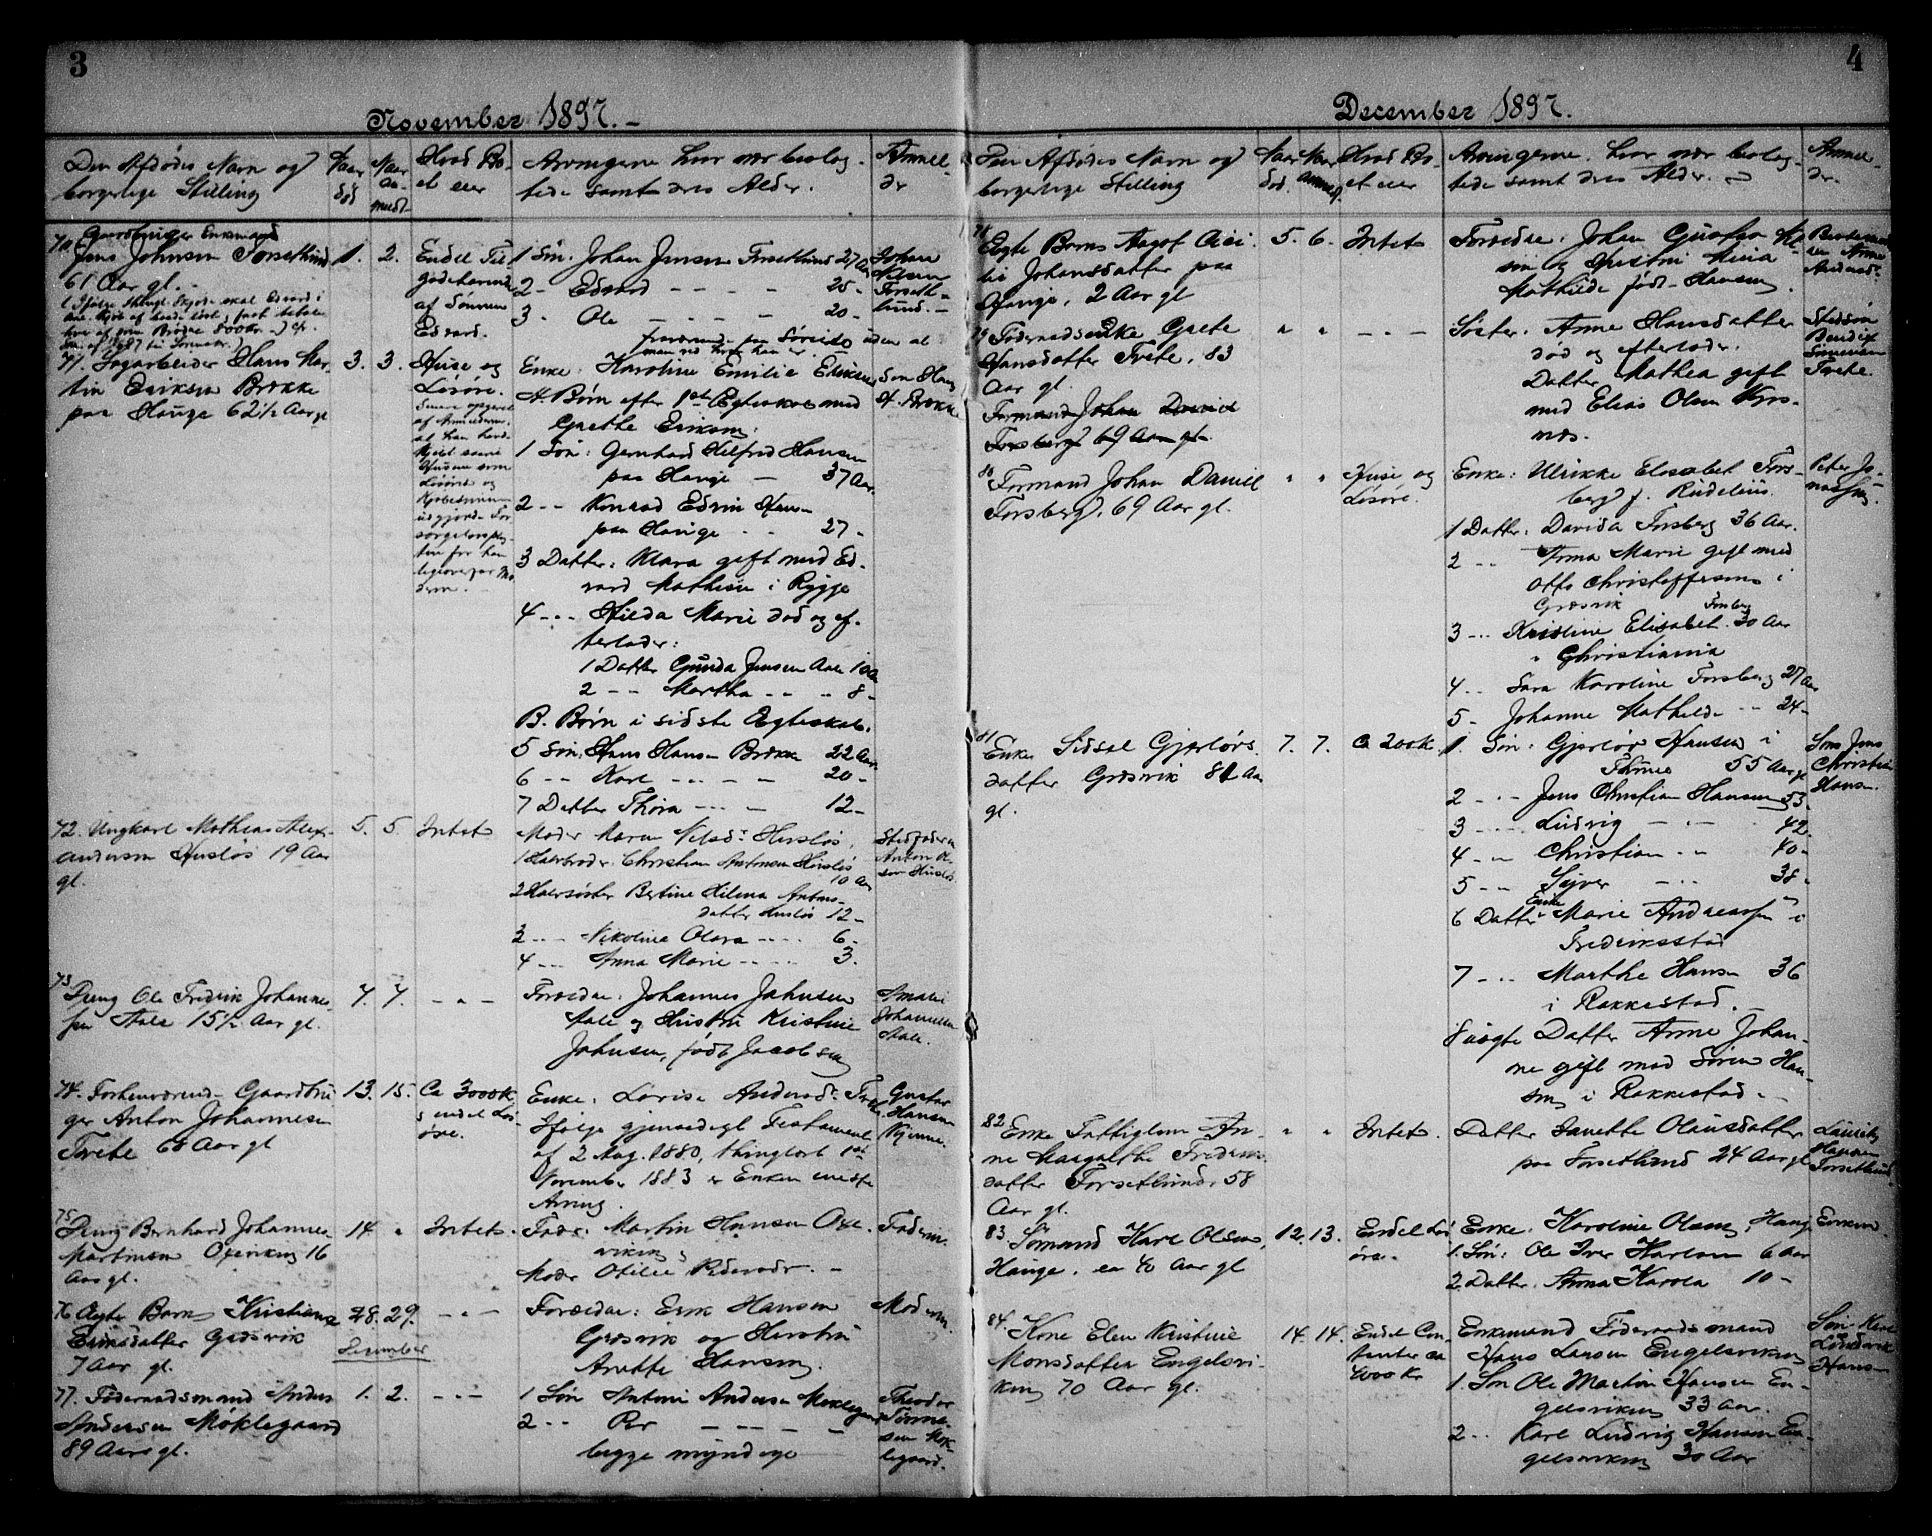 3
November 1897.-
Den Afdødes Navn og
borgerlige Stilling
Naar
død
Naar
an-
meldt
Hvad Bo-
et eier
Arvingerne hvor nær beslæg-
tede samt deres Alder.
Anmel-
der
70 Gaardbruger Enkemand
Jens Johnsen Forsetlund
61 Aar gl. -
1. 2.
Endel Til-
godehavende
af Sønnen
Edvard.
1 Søn: Johan Jensen Forsetlund 27 Aar
2 - Edvard - - - - 25 -
3. Ole - - - - 20 -
fraværende paa Søreise uden at
man ved hvor han er.
Johan
Nilsen
Forseth-
lund. -
71. Sagarbeider Hans Mar-
tin Eriksen Brække
paa Hauge 62 1/2 Aar gl
3. 3.
Huse og
Løsøre.
Enke: Karoline Emilie Eriksen
A Børn efter 1ste Ægteskab med
Grethe Eriksen:
1 Søn: Gernhard Hilfred Hansen
paa Hauge - 37 Aar.
2 - - Konrad Edvin Han-
paa Hauge - - 27 -
3 Datter: Klara gift med Ed-
vard Mathisen i Rygge
4 - - - Hilda Marie død og ef-
terlader:
1 Datter Gunda Jensen Aale 10 Aar
2 - - Martha - - - 8 -
B. Børn i sidste Ægteskab.
5 Søn: Hans Hansen Brække 22 Aar.
6 - - Karl - - - - 20 -
7 Datter Thora - - - - 12 -
Søn Hans
H. Brække
72. Ungkarl Mathias Alex-
andersen Husløs 19 Aar
gl.
5. 5. Intet
Moder Maren Nilsdr Husløs,
1 Halvbroder: Christian Antonsen Husløs
10 Aar
2 Halvsøster Bertine Hilma Antons-
datter Husløs 12 -
3 - - - Nikoline Olava - - - 6 -
4 - - - Anna Marie - - - 3.
Stedfaderen
Anton Ol-
sen Husløs.
73
Dreng Ole Fredrik Johannes-
sen Aale 15 1/2 Aar gl.
7. 7. - " -
Forældre: Johannes Johnsen
Aale og Hustru Kristine
Johnsen, født Jacobsen
Amalie
Johannesen
Aale.
74. Forhenværende Gaardbru-
ger Anton Johannesen
Torete 68 Aar gl
13. 15.
Ca 3000 K
og endel Løs-
øre.
Enke: Lovise Andersdr Torete.
Ifølge gjensidigt Testament
af 2 Aug. 1880, thinglæst 1ste
November 1883 er Enken eneste
Arving.
Gustav
Hansen
Kjenne.
75
Dreng Bernhard Johannes
Martinsen Oxeviken 16
Aar gl.
14. " Intet.
Fader: Martin Hansen Oxe-
viken,
Moder Otilie Pedersdr. -
Faderen.
76 Ægte Barn Kristiane
Eriksdatter Græsvik
7 Aar gl.
28. 29. - " -
Forældre: Erik Hansen
Græsvik og Hustru
Anette Hansen.
Moderen.
December
77. Føderaadsmand Anders
Andersen Møklegaard
89 Aar gl.
1. 2. - " -
1 Søn Antoni Andersen Møklegaard
2 - - Per - - - -
begge myndige
Theodor
Tønne-
sen Møk-
legaard.
4
December 1897.
Den Afdødes Navn og
borgerlige Stilling
Naar
død.
Naar
anmeldt.
Hvad Bo-
et eier
Arvingerne hvor nær beslæg-
tede samt deres Alder.
Anmel-
der.
78 Ægte Barn Aagot Ceci-
lie Johansdatter paa
Hauge, 2 Aar gl
5. 6. Intet
Forældre: Johan Gustav
og Hustru Maria
Mathilde født Hansen
79 Føderaadsenke Grete
Hansdatter Torete. 83
Aar gl.
" " - " -
Søster: Anne Hansdatter
død og efterlader:
Datter Mathea gift
med Elias Olsen Kjøs-
næs.
Stedsøn
Bendix
Simensen
Torete.
Formand Johan David
Forsberg 69 Aar gl.
80
Formand Johan Daniel
Forsberg, 69 Aar gl.
" " Huse og
Løsøre.
Enke: Ulrikke Elisabet Fors-
berg f. Rudelius.
1 Datter: Davida Forsberg 36 Aar.
2 - - Anna Marie gift med
Otto Christoffersen i
Græsvik
3 - - Kristine Elisabet Forsberg 30 Aar
i Christiania
4 - - Sara Karoline Forsberg 27 Aar
5 - Johanne Mathilde - - 24 -
Peter Jo-
nassen.
81
Enke Sidsel Gjerløvs-
datter Græsvik 81 Aar
gl.
7. 7. Ca 200 K.
1. Søn: Gjerløv Hansen i
Thune 55 Aar gl
2 - - - Jens Christian Hansen 53.
3 - - - Ludvig - - - 42.
4 - - Christian - - 40 -
5 - - Sejver - - - 38 -
6 Datter Enke Marie Andreassen i
Fredriksstad
7 - - - Marthe Hansen 36
i Rakkestad.
8 uægte Datter Anne Johan-
ne gift med Søren Han-
sen i Rakkestad. -
Søn Jens
Christian
Hansen.
82
Enke Fattiglem An-
ne Margrethe Fredriks-
datter Forsetlund, 58
Aar gl.
" " Intet.
Datter Janette Olausdatter
paa Forsetlund 24 Aar gl
Lauritz
Hansen
Forsetlund
83. Sømand Karl Olsen,
Hauge. ca 40 Aar gl
12. 13. Endel Løs-
øre.
Enke: Karoline Olsen, Hauge
1. Søn: Ole Iver Karlsen 6 Aar
2. Datter: Anna Karola 10 -
Enken
84.
Kone Elen Kristine
Monsdatter Engelsvi-
ken 70 Aar gl.
14. 14. Endel Con-
tanter ca
4000 Kr
Enkemand Føderaadsmand
Hans Larsen Engelsviken
1. Søn Ole Martin Hansen En-
gelsviken 33 Aar.
2 - - Karl Ludvig Hansen En-
gelsviken 30 Aar
Søn Karl
Ludvik
Hansen